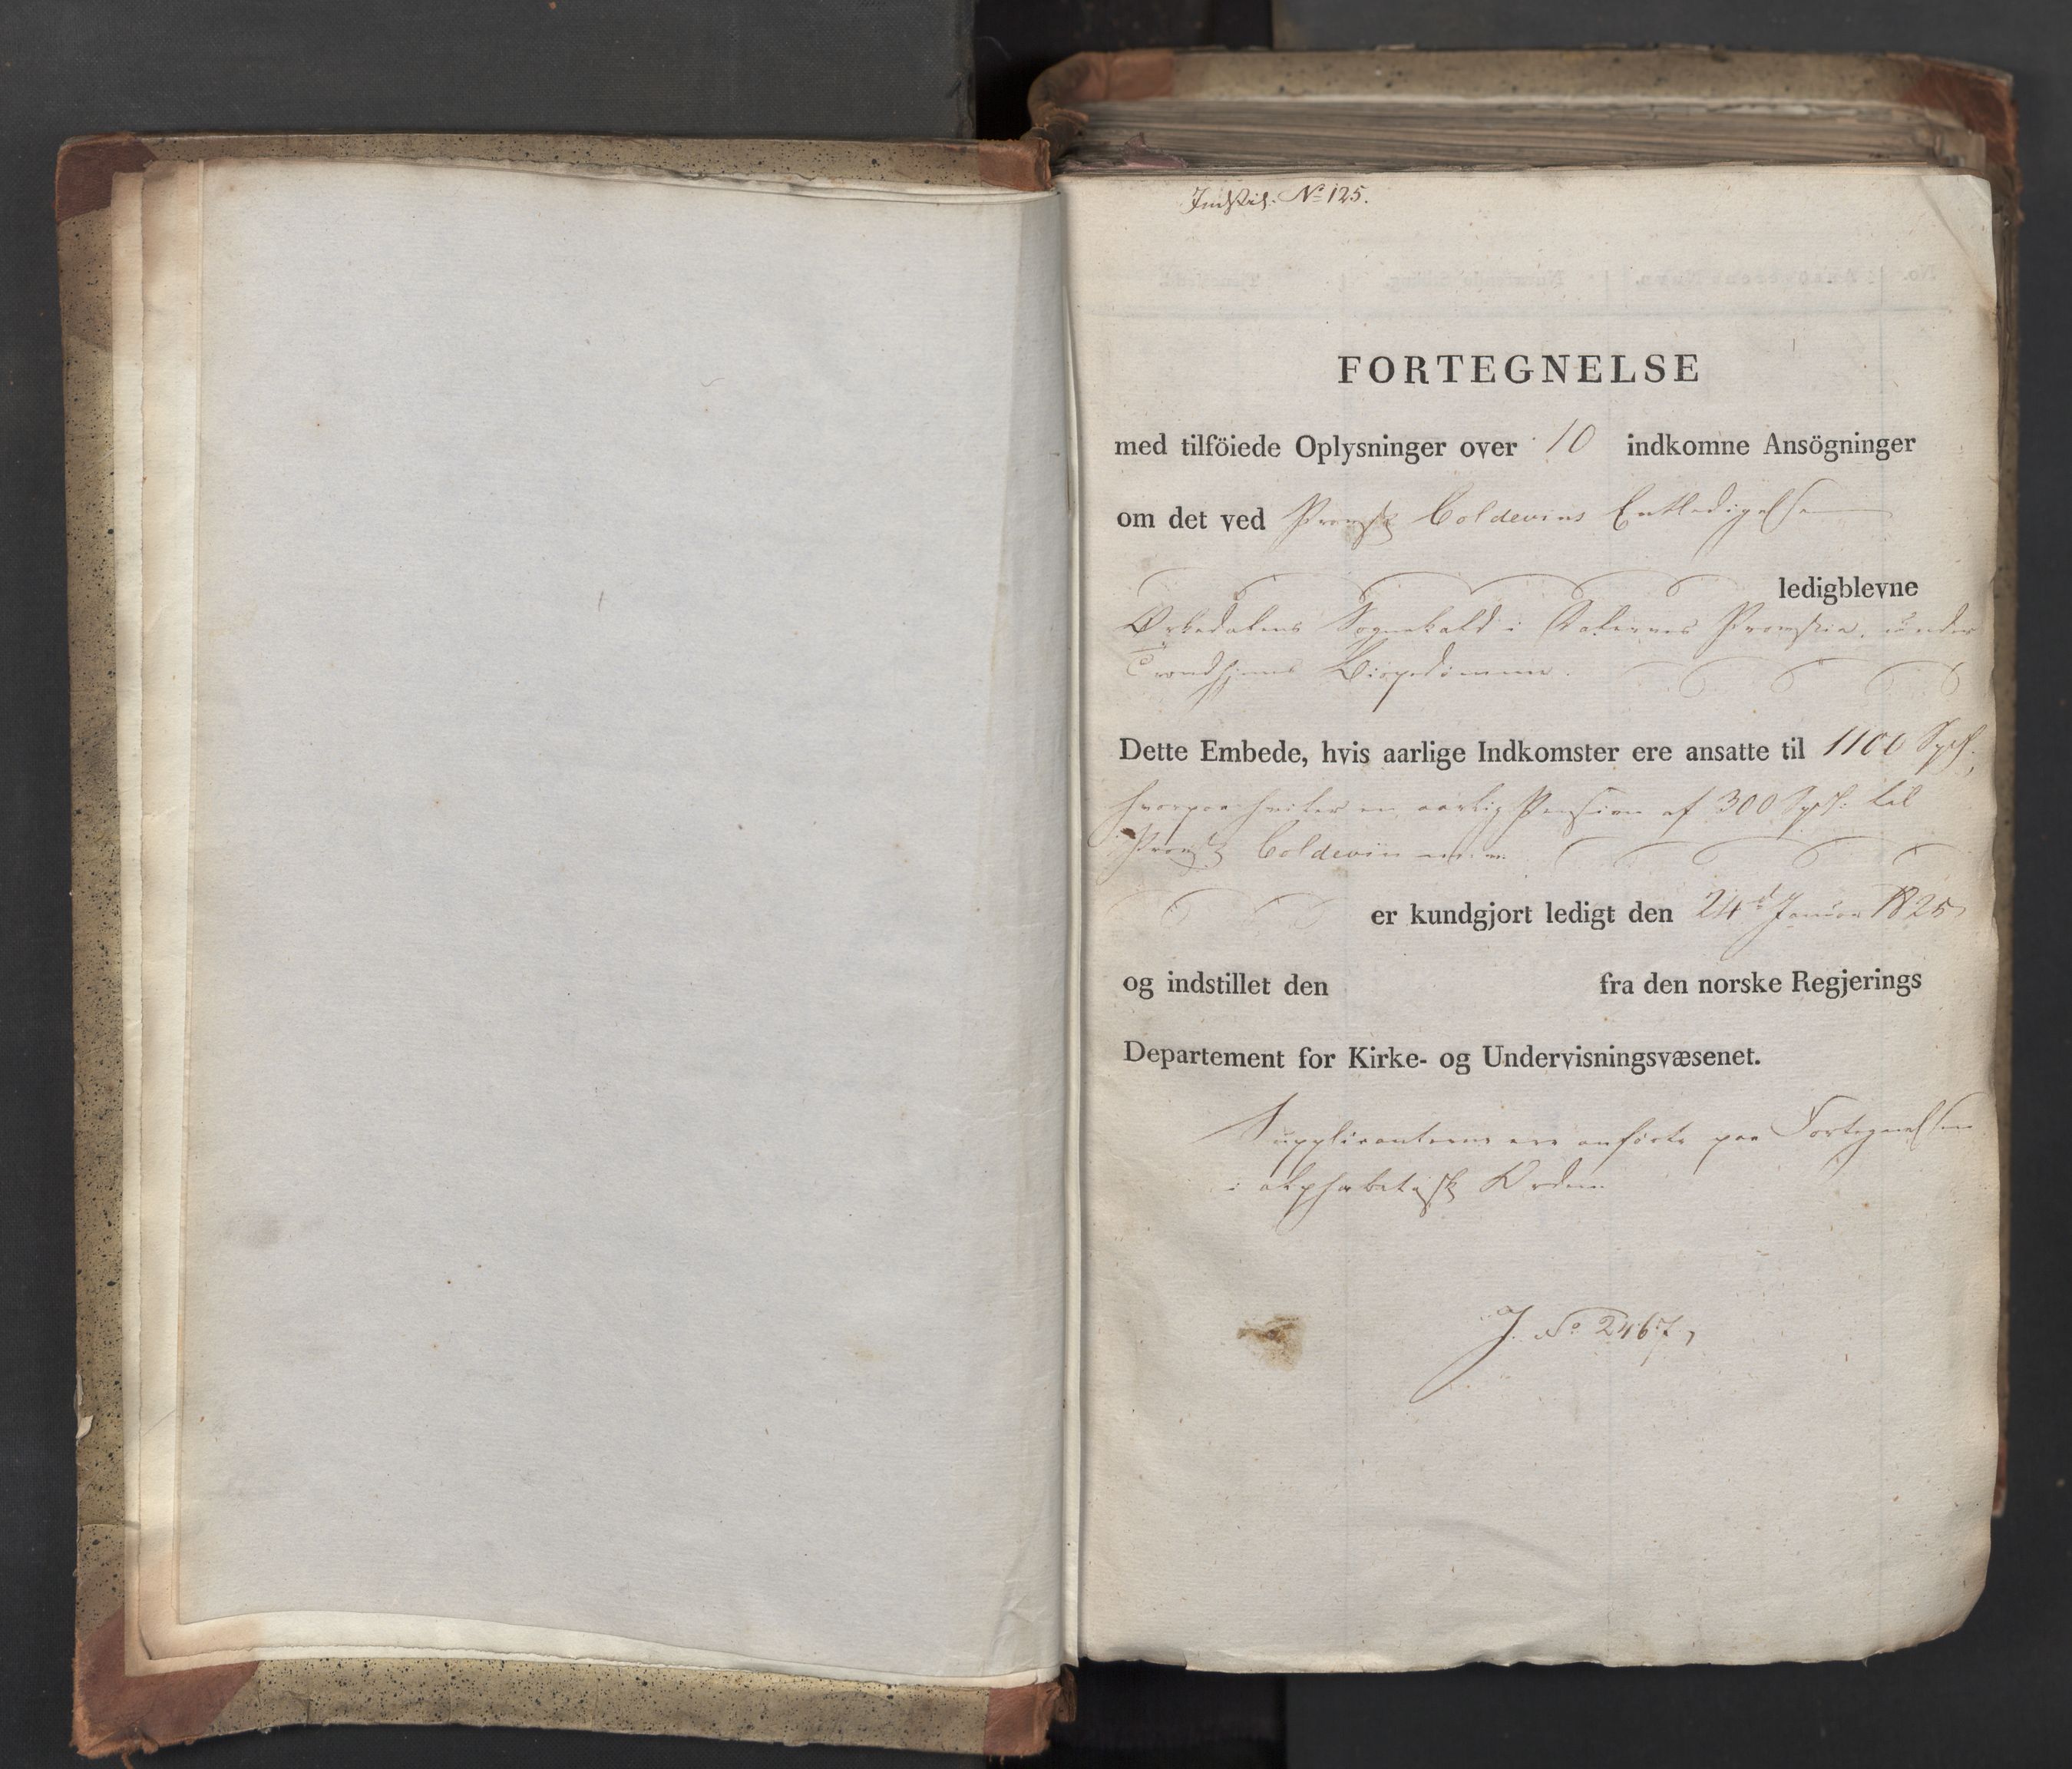 Indstil: No 125.
FORTEGNELSE
med tilföiede Oplysninger over 10 indkomne Ansögninger
om det ved Provst Coldevins Entledigelse
ledigblevne
Ørkedalens Sognekald i Dalernes Provstie, under
Trondhjems Bispedømme.
Dette Embede, hvis aarlige Indkomster ere ansatte til 1100 Spd.
hvorpaa hviler en aarlig Pension af 300 Spd: til
Provst Coldevin
er kundgjort ledigt den 24d Januar 1825
og indstillet den fra den norske Regjerings
Departement for Kirke- og Undervisningsvæsenet.
Supplicanterne ere anførte paa Fortegnelsen
i alphabetisk Orden
J. No 2467,